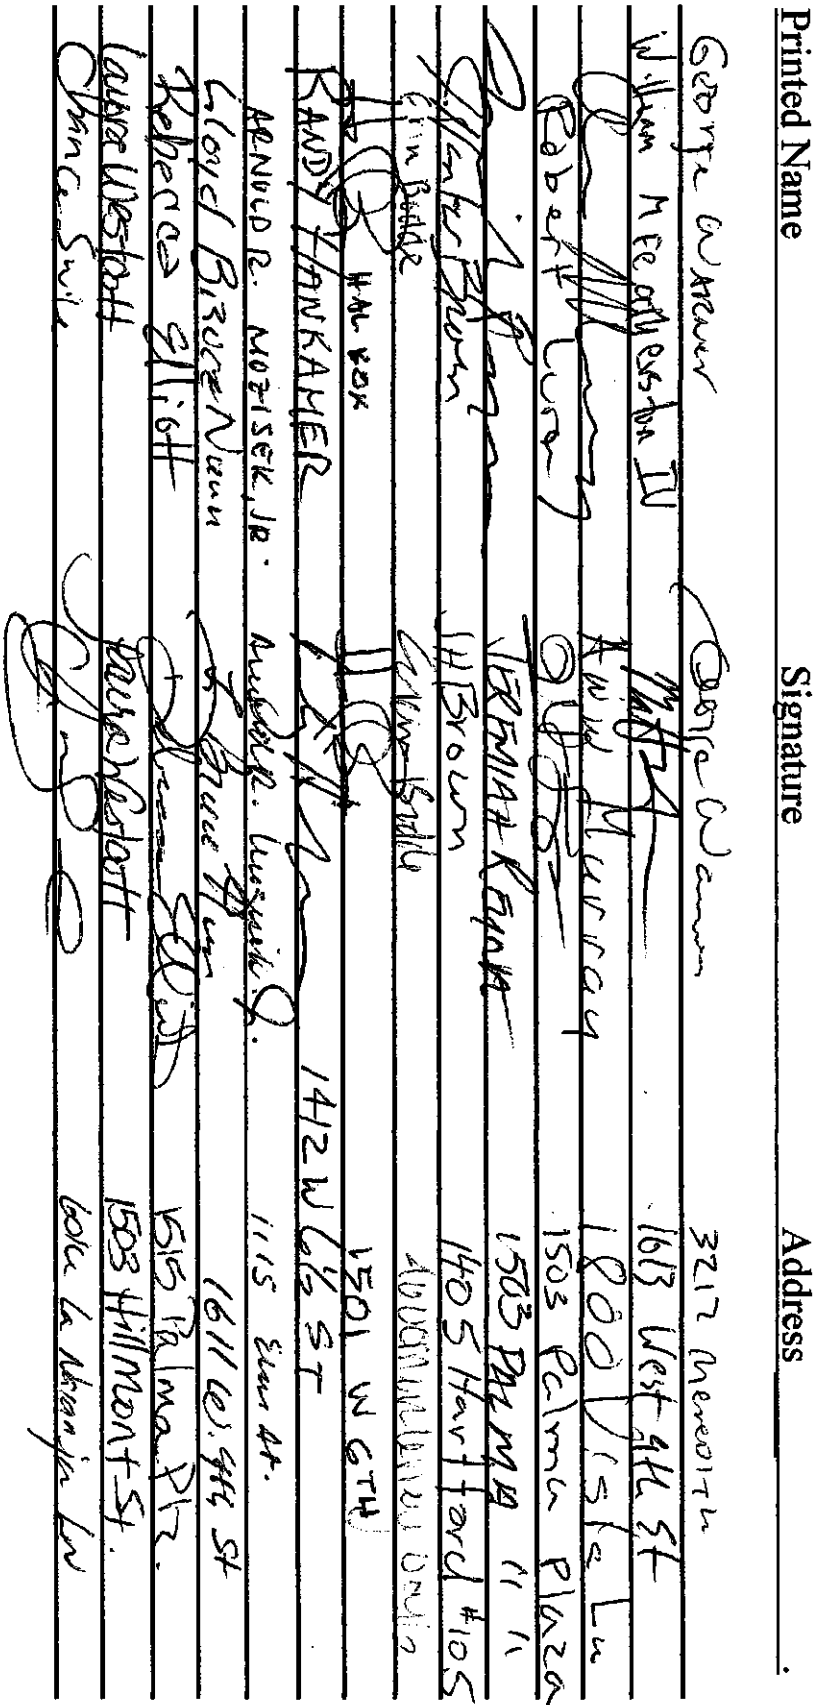 Printed Name Signature Address
George Warner George Warner 3217 Meredith
William M Featherston IV 1613 West 9th St
Ann Murray 1800 Vista Ln
Robert Luray 1503 Palma Plaza
JEREMIAH 1503 PALMA " "
Brown JH Brown 1405 Hartford #105
Budde
HAL KOK 1501 W 6TH
RANDY HANKAMER 1412 W 6½ ST
ARNOLD R. MOZISEK, JR. Arnold R. Mozisek Jr. 1115 Elm St.
Lloyd Bruce Nunn L Bruce Nunn 1611 W. 9th St
Rebecca Elliott Rebecca Elliott 1515 Palma Plz.
Laura Westcott Laura Westcott 1503 Hillmont St.
Chance La Naranja Ln